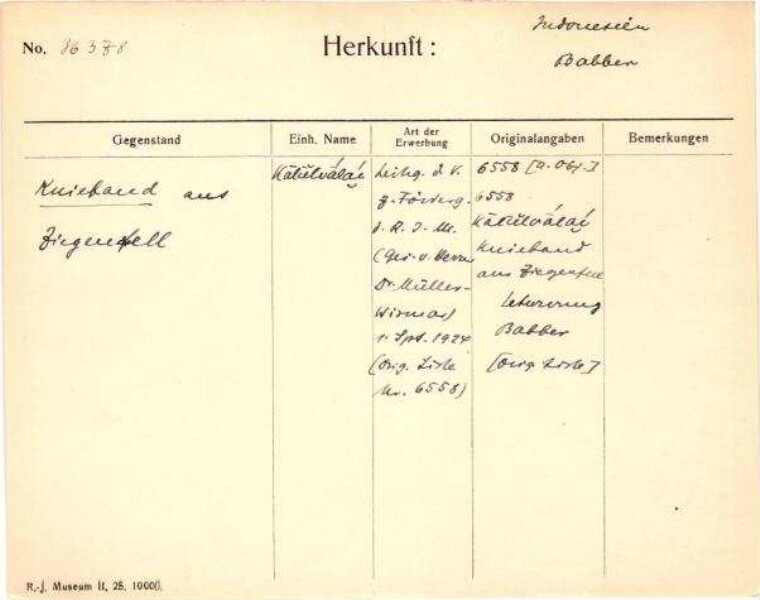 No. 36378
Herkunft:
Indonesien
Babber
Gegenstand
Einh. Name
Art der
Erwerbung
Originalangaben
Bemerkungen
Knieband aus
Ziegenfell
Kātĕlvālāi
Leihg. d. V.
z. Förderg.
d. R. J. M.
(Ges. v. Herrn
Dr. Müller-
Wismar)
1. Spt. 1924
(Orig. Liste
Nr. 6558)
6558 [a. Obj.]
6558
Kātĕlvālāi
Knieband
aus Ziegenfell
Babber
[Orig. Liste]
R.-J. Museum II, 25. 10000.